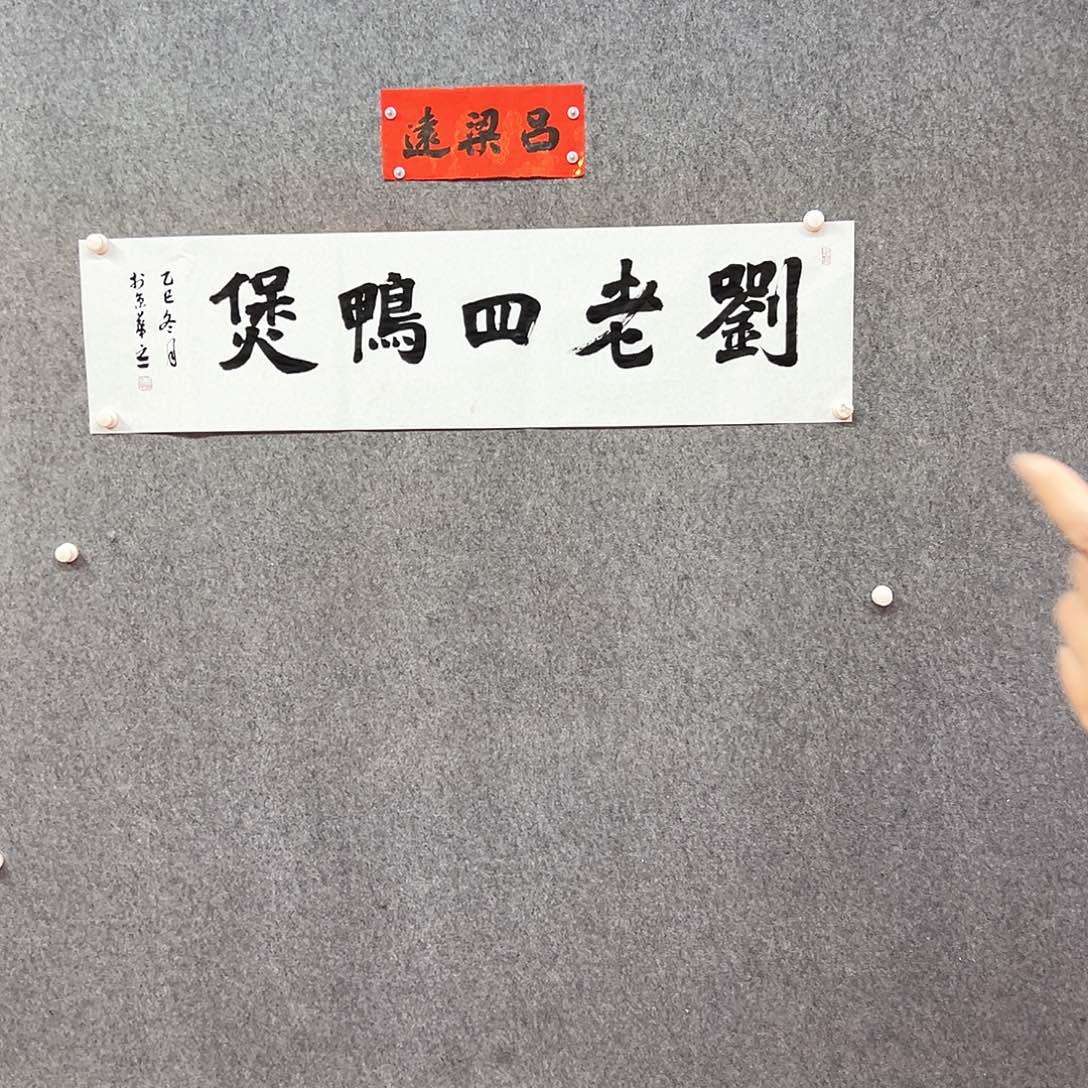 吕梁遠
劉老四鴨煲
乙巳冬月
於京華